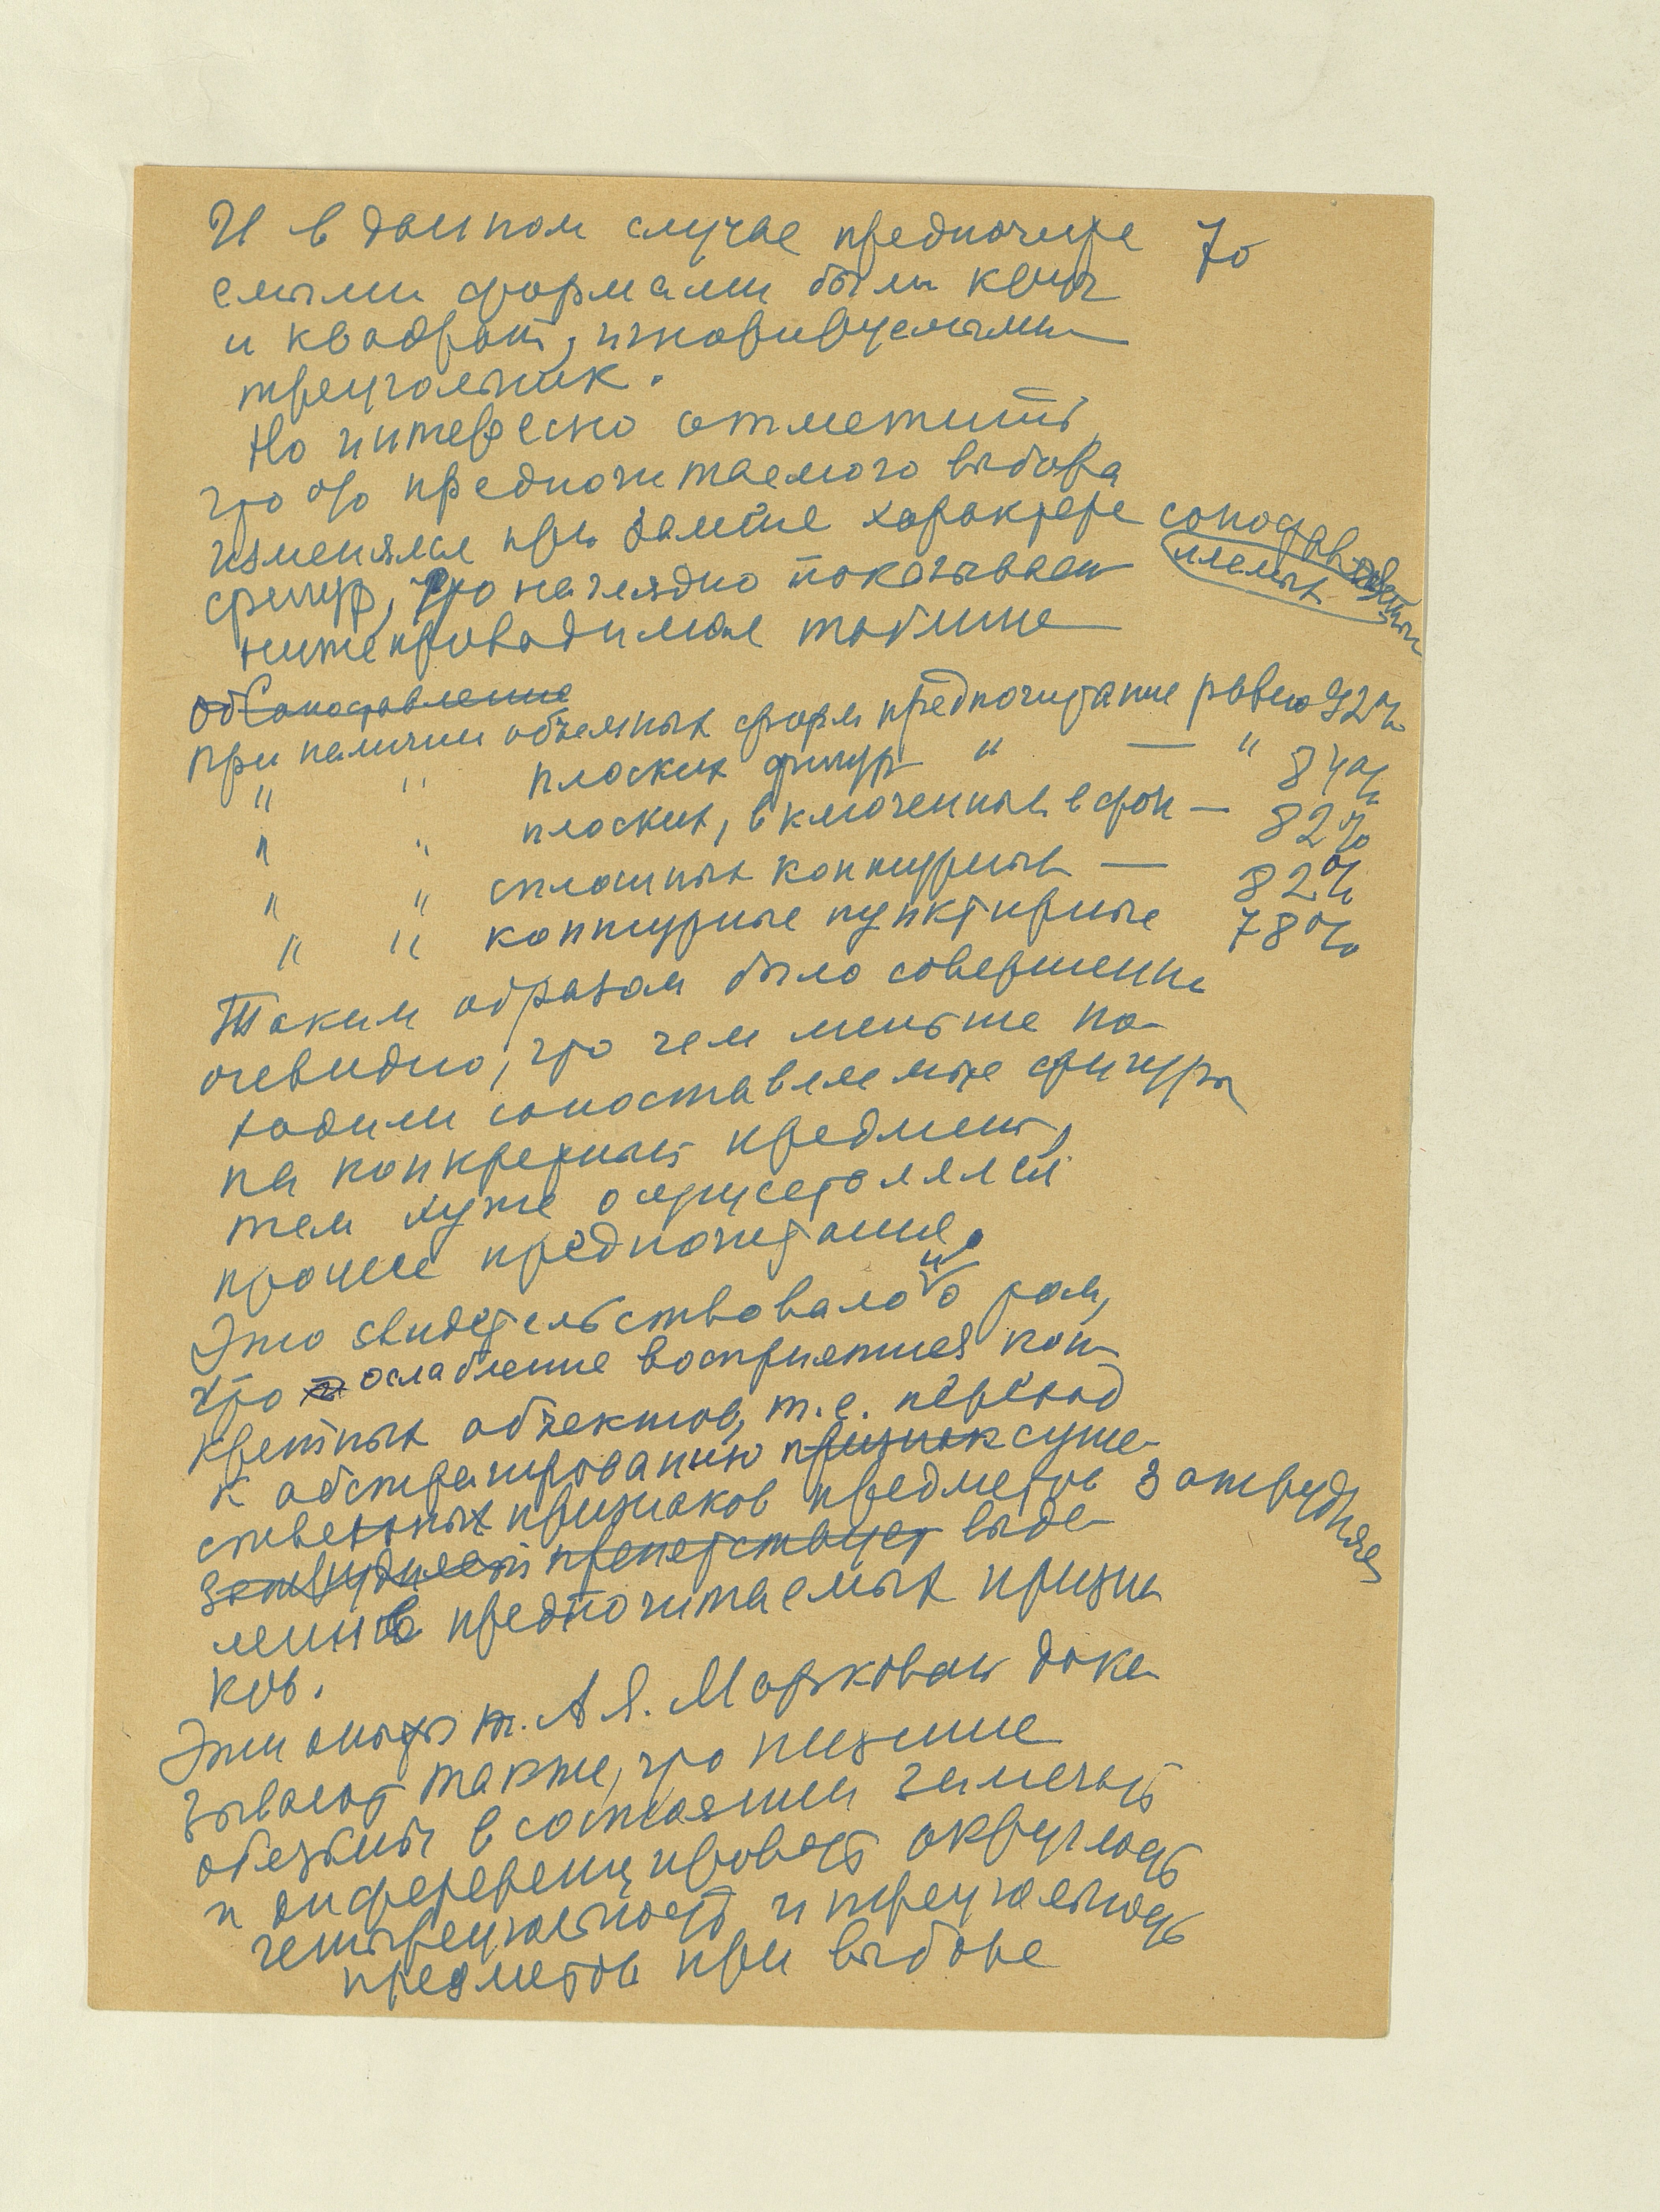 И в данном случае предпочитае 70
емыми формами были круг
и квадрат, игнорируемыми
треугольник.
Но интересно отметить,
что % предпочитаемого выбора
изменялся при замене характере сопостав
фигур, что наглядно показывает
нижепроводимая таблица
Об Сопоставление
При наличии объемных форм предпочитание равно 92%
" " плоских фигур " — " 84%
" " плоских, включенных в фон — 82%
" " сплошных контурных — 82%
" " контурные пунктирные 78%
Таким образом было совершенно
очевидно, что чем меньше по-
ходили сопоставляемые фигуры
на конкретный предмет,
тем хуже осуществлялся
процесс предпочитания.
Это свидетельствовало и о том,
что ослабление восприятия кон-
кретных объектов, т.е. переход
к абстрагированию признак суще-
ственных признаков предметов затрудняе
затрудняет препятствует выде-
ление предпочитаемых призна
ков.
Эти опыты т. А Я. Марковой дока
зывают также, что низшие
обезьяны в состоянии замечать
и диференцировать округлость
четыреугольность и треугольность
предметов при выборе